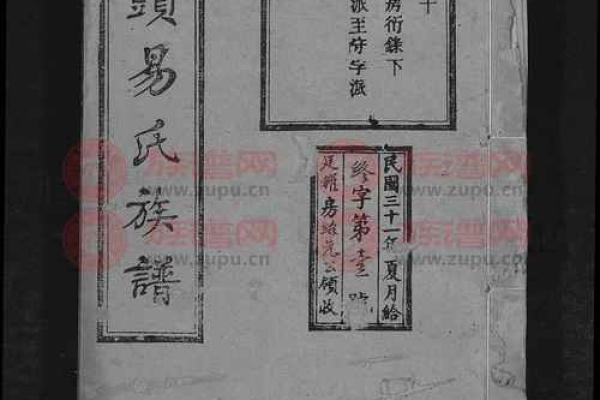 十
房衍錄下
派至 字派
民國三十一年夏月給
字第壹號
房 公領收
頭易氏族譜
族谱网
www.zupu.cn
族谱网
www.zupu.cn
族谱网
www.zupu.cn
族谱网
www.zupu.cn